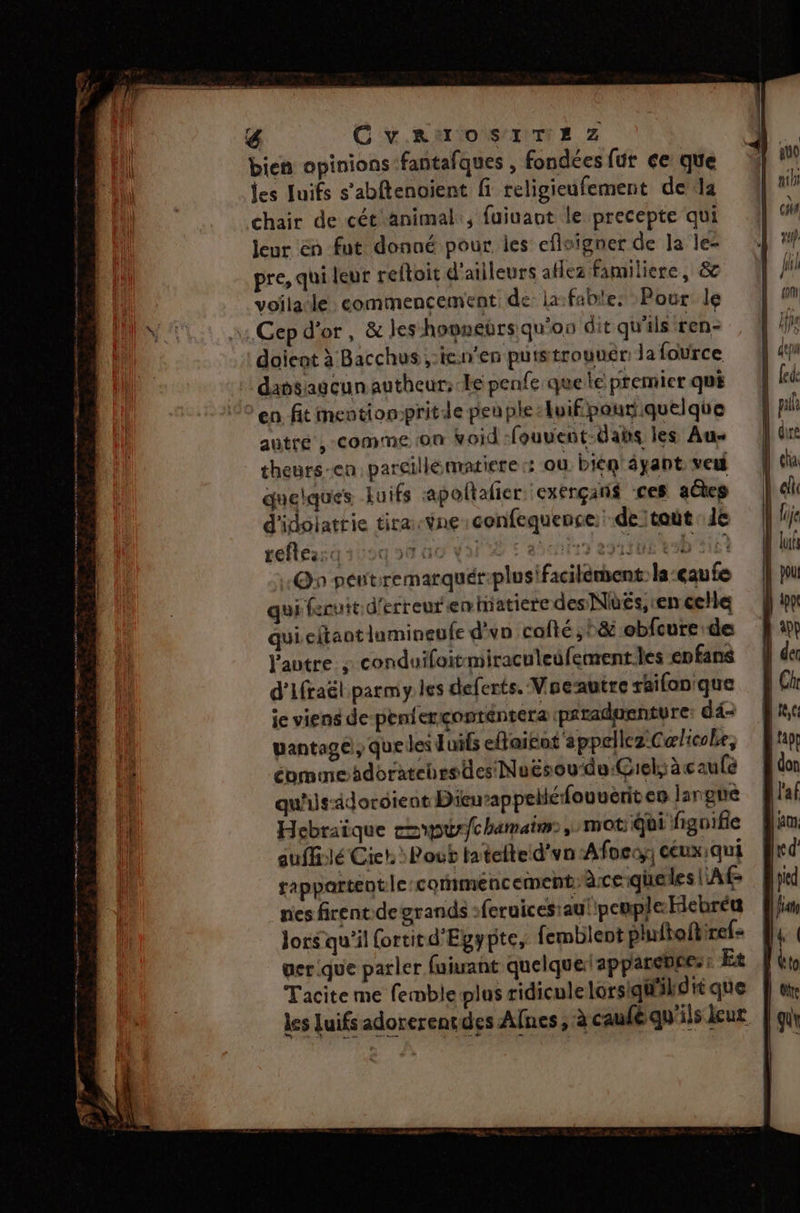 6 CVRIOSITEZ
bien opinions fantaſques, fondées ſur ce que
les Iuifs s'abſtenoient ſi religieuſement de la
chair de cét animal, ſuiuant le precepte qui
leur en fut donné pour les eſloigner de la le-
pre, qui leur reſtoit d'ailleurs aſſez familiere, &
voila le commencement de la fable. Pour le
Cep d'or, & les honneurs qu'on dit qu'ils ren-
doient à Bacchus, ie n'en puis trouuer la ſource
dans aucun autheur; Ie penſe que le premier qui
en fit mention prit le peuple Iuif pour quelque
autre, comme on void ſouuent dans les Au-
theurs en pareille matiere; ou bien ayant veu
quelques Iuifs apoſtaſier exerçans ces actes
d'idolatrie tira vne conſequence de tout le
reſte.
On peut remarquer plus facilement la cauſe
qui ſeruit d'erreur en matiere des Nuës, en celle
qui eſtant lumineuſe d'vn coſté, & obſcure de
l'autre, conduiſoit miraculeuſement les enfans
d'Iſraël parmy les deſerts. Vne autre raiſon que
ie viens de penſer contentera paraduenture da-
uantage, que les Iuifs eſtoient appellez Cælicolæ,
comme adorateurs des Nuës ou du Ciel, à cauſe
qu'ils adoroient Dieu appellé ſouuent en langue
Hebraïque ſchamaim, mot qui ſignifie
auſſi le Ciel. Pour la teſte d'vn Aſne, ceux qui
rapportent le commencement à ce que les Aſ-
nes firent de grands ſeruices au peuple Hebreu
lors qu'il ſortit d'Egypte, ſemblent pluſtoſt reſ-
uer que parler ſuiuant quelque apparence: Et
Tacite me ſemble plus ridicule lors qu'il dit que
les Iuifs adorerent des Aſnes, à cauſe qu'ils leur